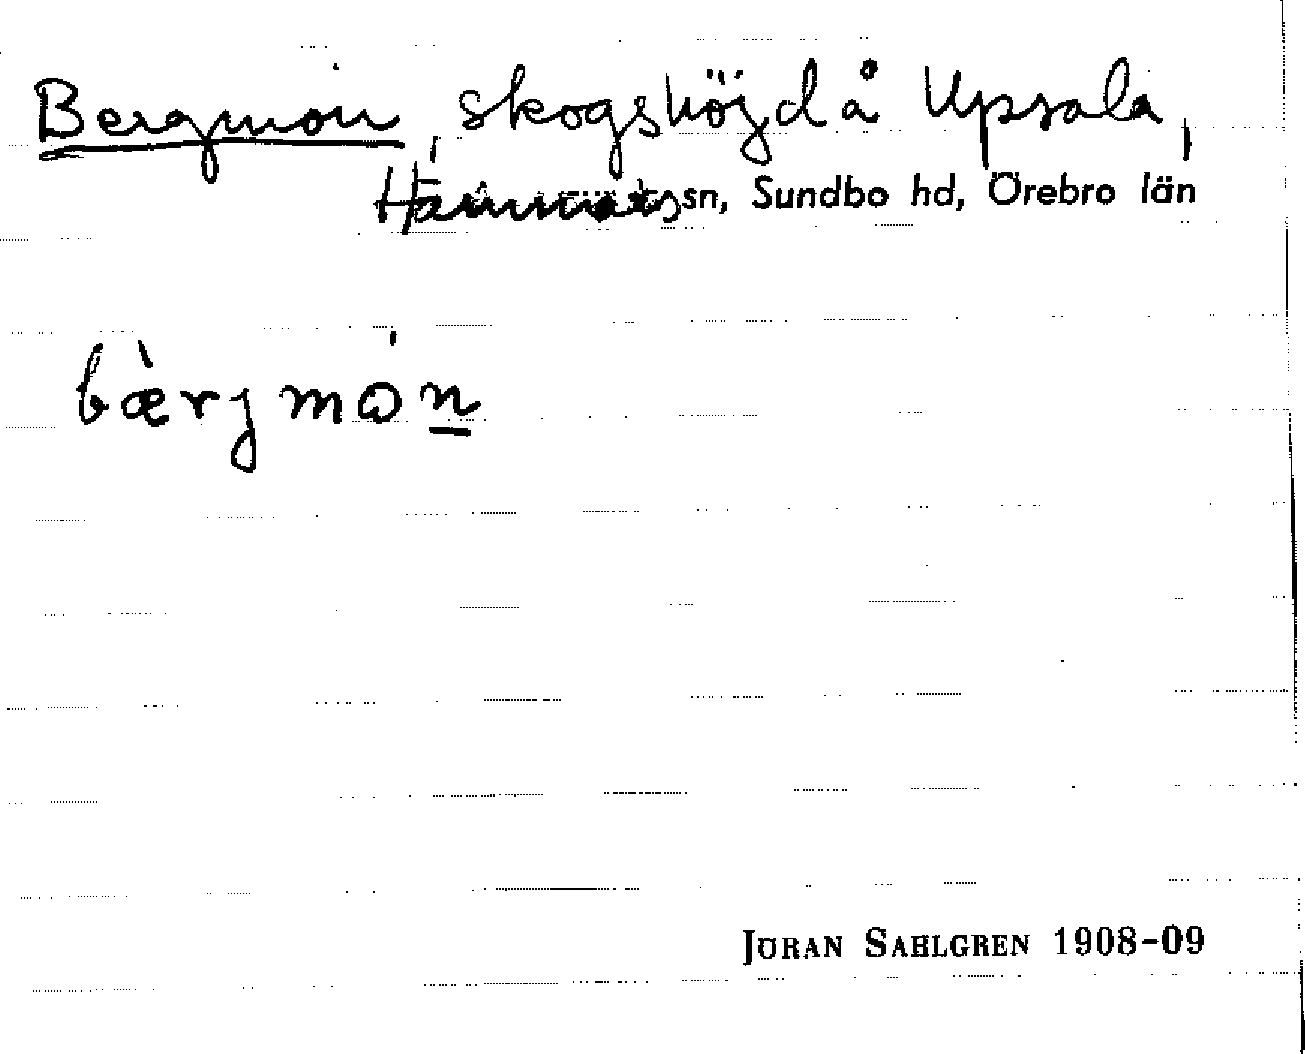 Bergmon, skogshöjd å Upsala,
Hammars sn, Sundbo hd, Örebro län
bæ̀rjmón
JÖRAN SAHLGREN 1908-09